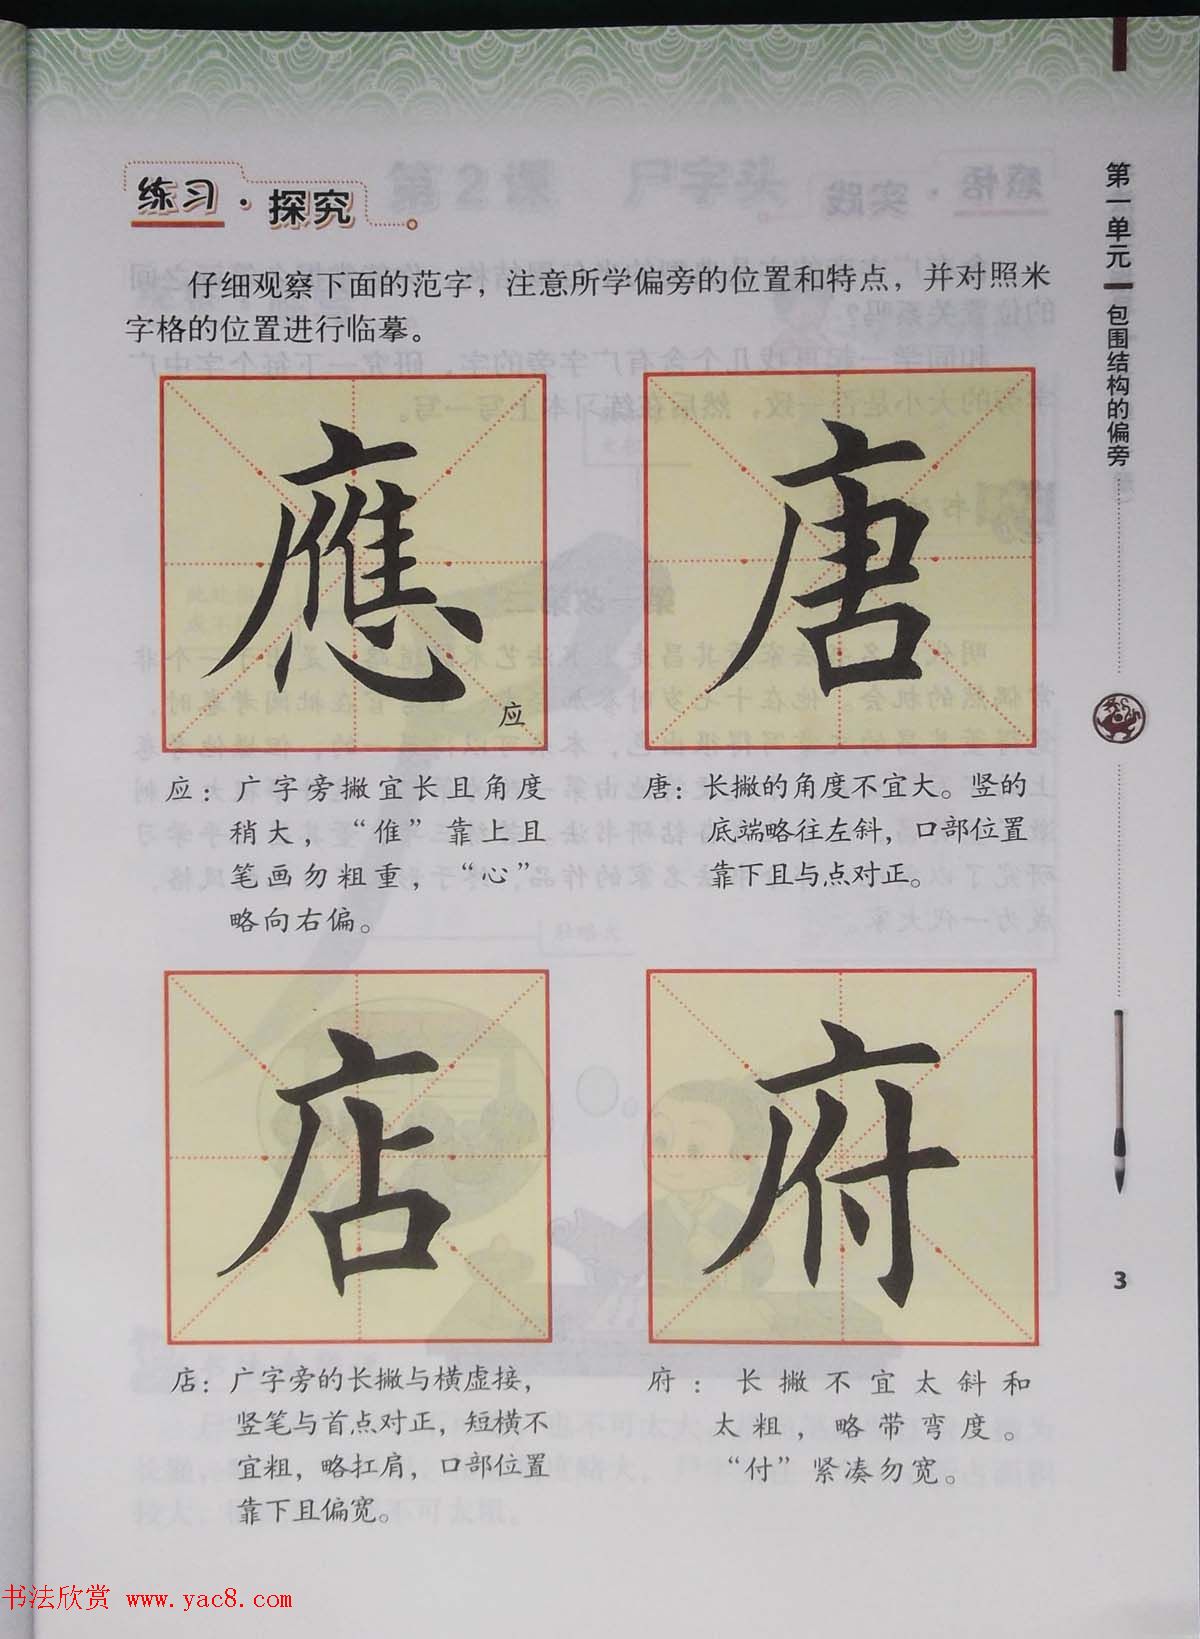 练习·探究
仔细观察下面的范字，注意所学偏旁的位置和特点，并对照米
字格的位置进行临摹。
應
应
应：广字旁撇宜长且角度
稍大，“倠”靠上且
笔画勿粗重，“心”
略向右偏。
唐
唐：长撇的角度不宜大。竖的
底端略往左斜，口部位置
靠下且与点对正。
店
店：广字旁的长撇与横虚接，
竖笔与首点对正，短横不
宜粗，略扛肩，口部位置
靠下且偏宽。
府
府：长撇不宜太斜和
太粗，略带弯度。
“付”紧凑勿宽。
第一单元 包围结构的偏旁
3
书法欣赏 www.yac8.com